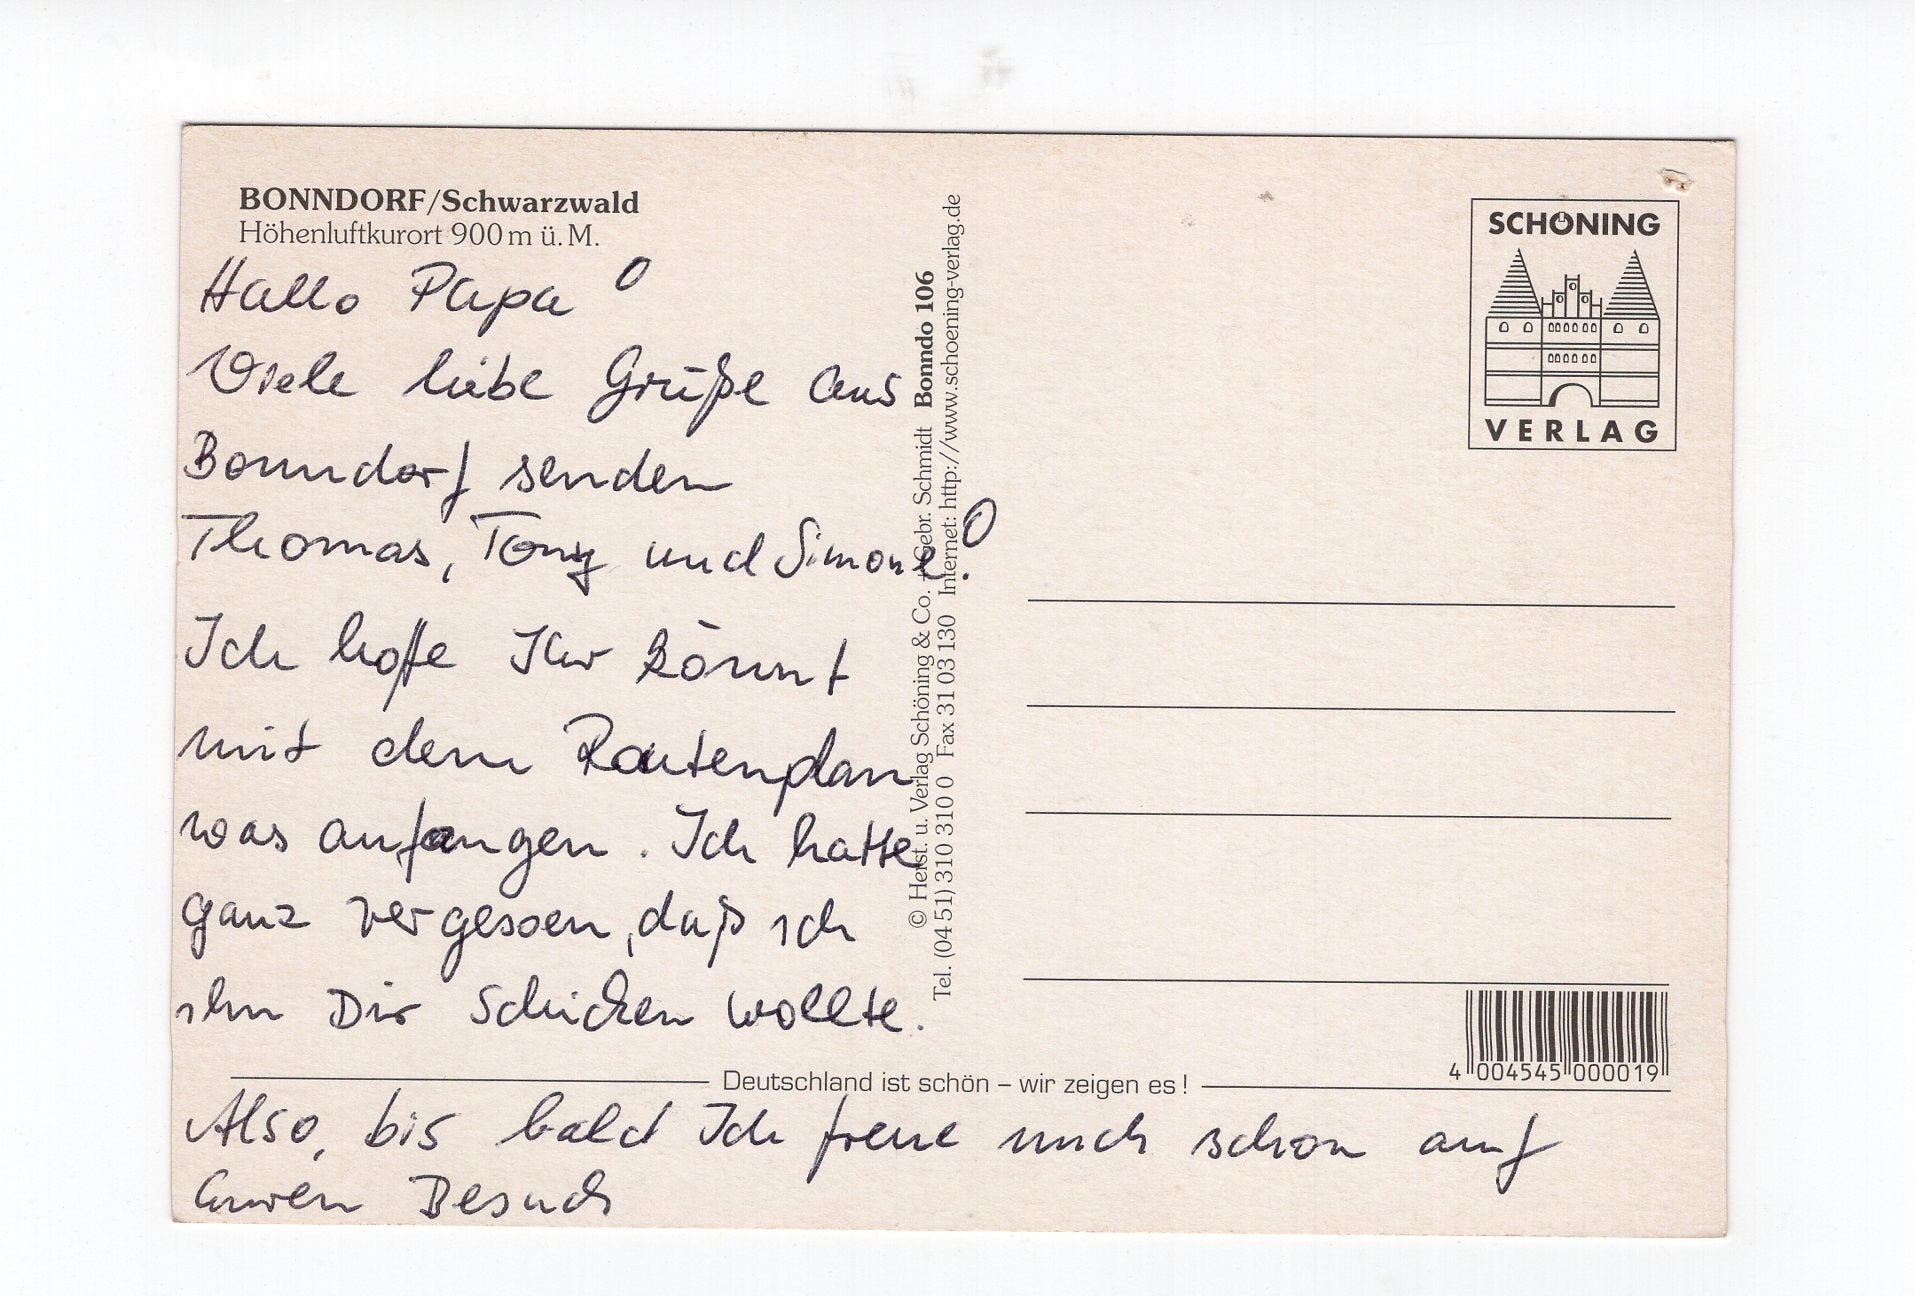 BONNDORF/Schwarzwald
Höhenluftkurort 900 m ü. M.
Hallo Papa!
Viele liebe Grüße aus
Bonndorf senden
Thomas, Tony und Simone!
Ich hoffe Ihr könnt
mit dem Routenplan
was anfangen. Ich hatte
ganz vergessen, daß ich
ihn Dir schicken wollte.
Deutschland ist schön – wir zeigen es!
Also, bis bald Ich freue mich schon auf
Euren Besuch
© Herst. u. Verlag Schöning & Co. + Gebr. Schmidt Bonndo 106
Tel. (04 51) 310 310 0 Fax 31 03 130 Internet: http://www.schoening-verlag.de
SCHÖNING
VERLAG
4 004545 000019